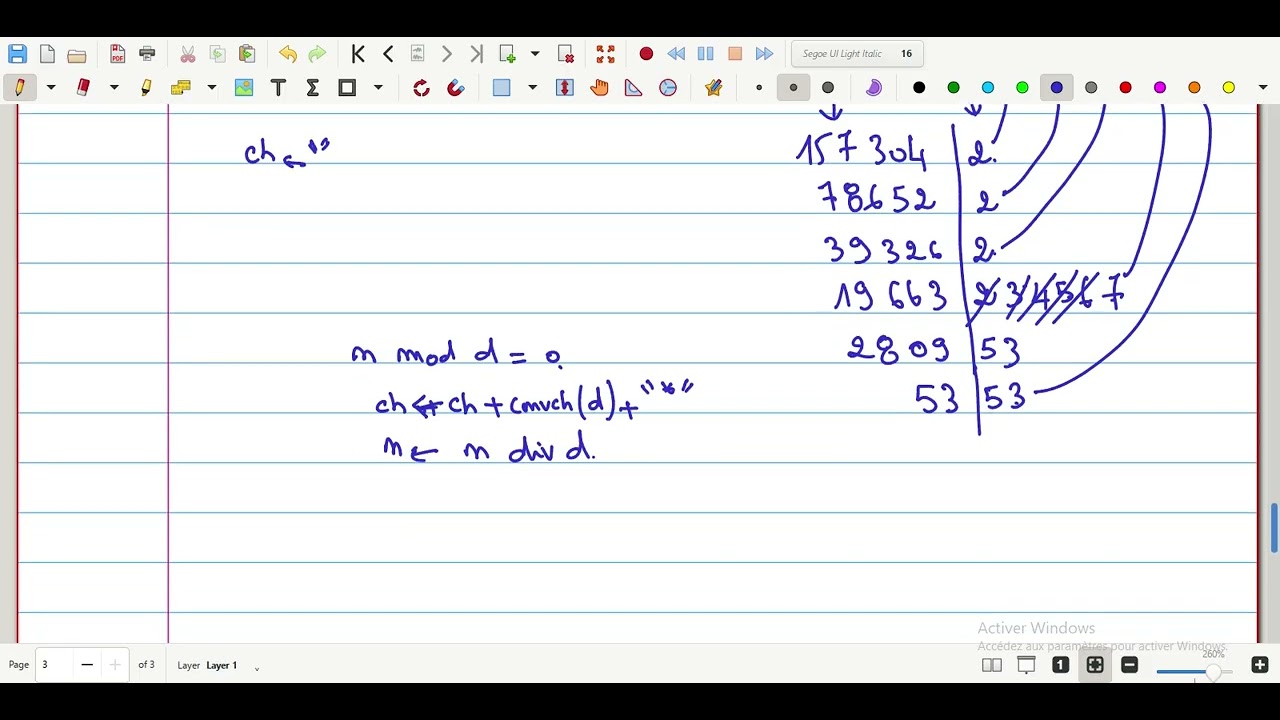 Segoe UI Light Italic 16
ch ← ""
157 304 | 2
78652 | 2
39 326 | 2
19 663 | 2 3 4 5 6 7
2809 | 53
53 | 53
n mod d = 0
ch ← ch + convch(d) + "*"
n ← n div d.
Activer Windows
Accédez aux paramètres pour activer Windows.
Page 3 of 3 Layer Layer 1
1
260%